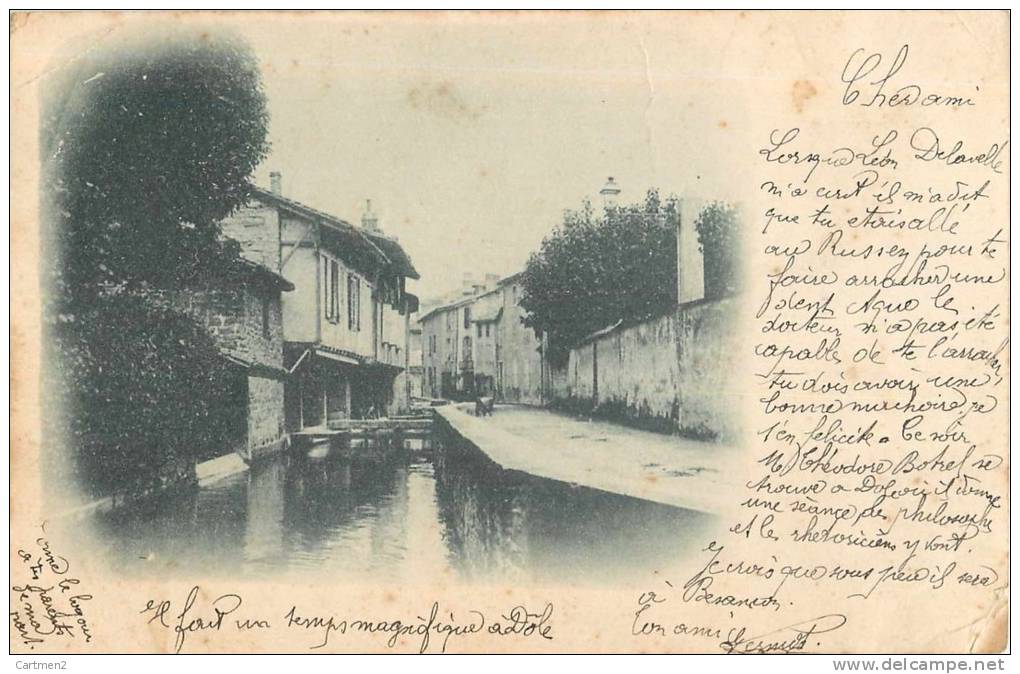 Cher ami
Lorsque Léon Delavelle
m'a écrit il m'a dit
que tu étais allé
au Russey pour te
faire arracher une
dent. Que le
docteur n'a pas été
capable de te l'arracher,
tu dois avoir une
bonne machoire, je
t'en félicite. Ce soir
M Théodore Botrel se
trouve a Dole où il donne
une séance, les philosophes
et les rhétoriciens y vont.
Je crois que sous peu il sera
à Besançon.
Ton ami
Il fait un temps magnifique a Dôle
Donne le bonjour
a tes parents
de ma
part.
Cartmen2
http://www.delcampe.net